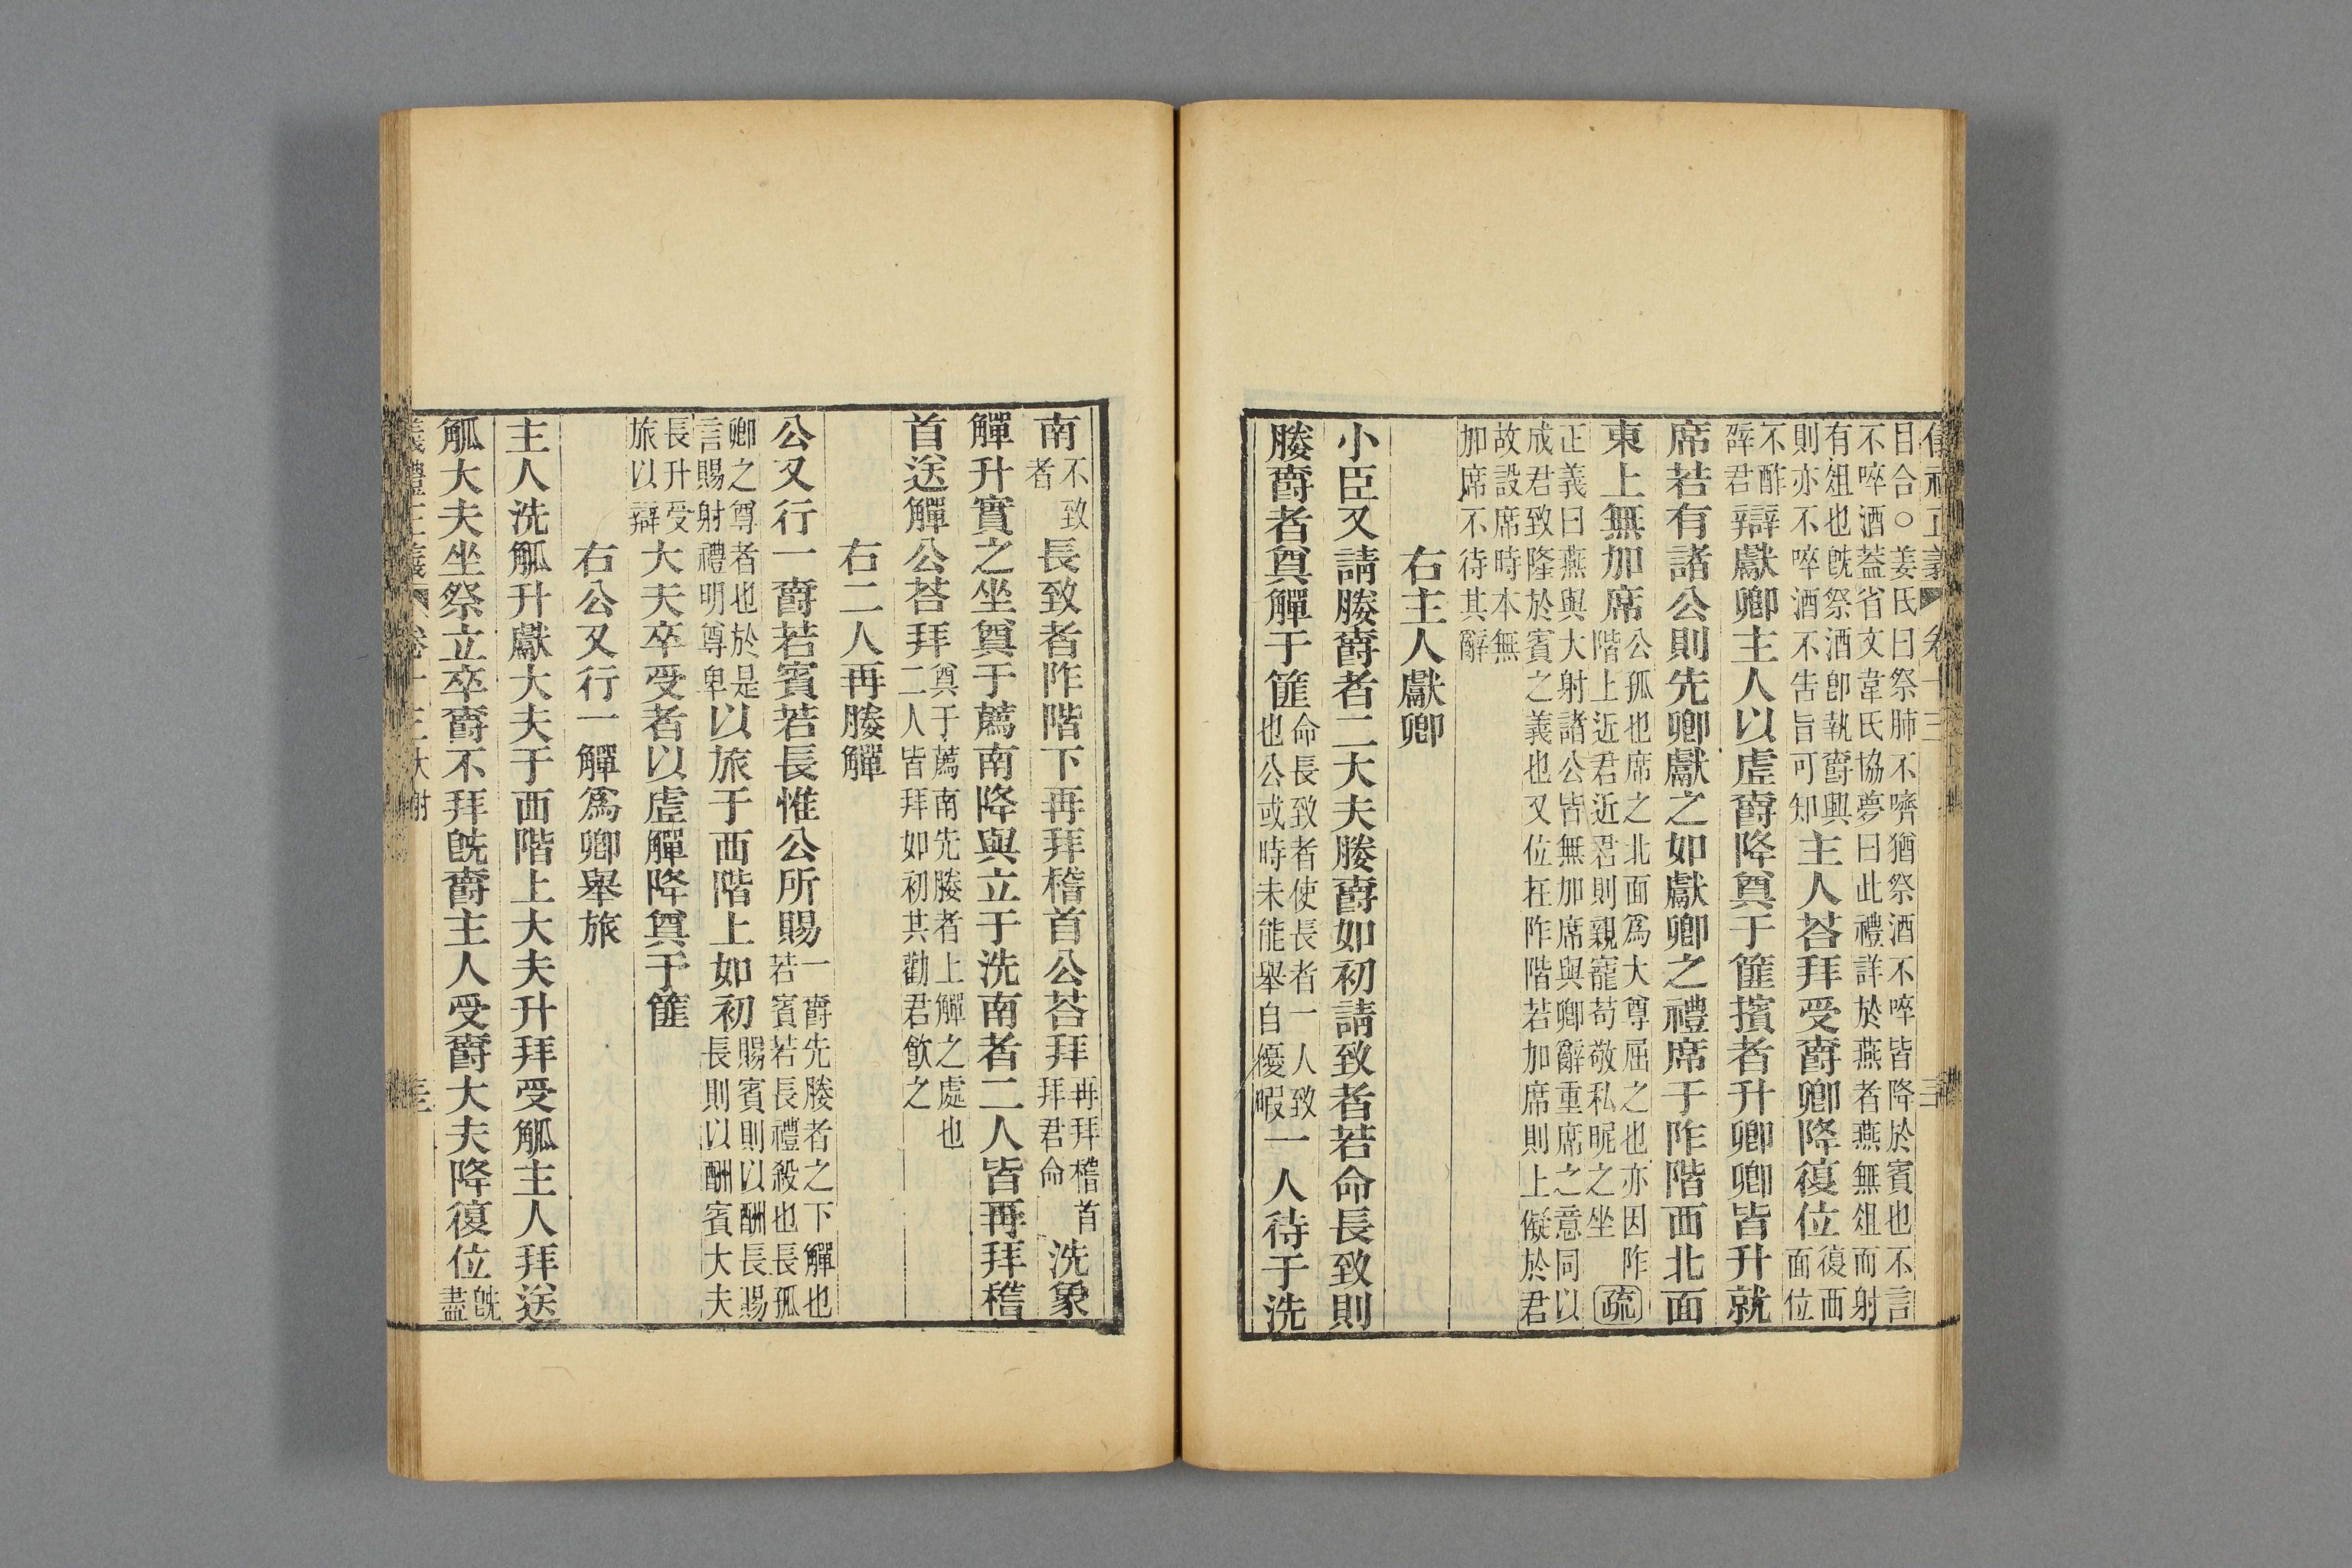 目合○姜氏曰祭肺不嚌猶祭酒不啐皆降於賓也不言
不啐酒蓋省文韋氏協夢曰此禮詳於燕者燕無俎而射
有俎也旣祭酒卽執爵興
則亦不啐酒不告旨可知
主人荅拜受爵卿降復位
復西
面位
不酢
辟君
辯獻卿主人以虛爵降奠于篚擯者升卿卿皆升就
席若有諸公則先卿獻之如獻卿之禮席于阼階西北面
東上無加席
公孤也席之北面爲大尊屈之也亦因阼
階上近君近君則親寵苟敬私昵之坐
疏
正義曰燕與大射諸公皆無加席與卿辭重席之意同以
成君致隆於賓之義也又位在阼階若加席則上儗於君
故設席時本無
加席不待其辭
右主人獻卿
小臣又請媵爵者二大夫媵爵如初請致者若命長致則
媵爵者奠觶于篚
命長致者使長者一人致
也公或時未能舉自優暇
一人待于洗
南
不致
者
長致者阼階下再拜稽首公荅拜
再拜稽首
拜君命
洗象
觶升實之坐奠于薦南降與立于洗南者二人皆再拜稽
首送觶公荅拜
奠于薦南先媵者上觶之處也
二人皆拜如初共勸君飮之
右二人再媵觶
公又行一爵若賓若長惟公所賜
一爵先媵者之下觶也
若賓若長禮殺也長孤
卿之尊者也於是
言賜射禮明尊卑
以旅于西階上如初
賜賓則以酬長賜
長則以酬賓大夫
長升受
旅以辯
大夫卒受者以虛觶降奠于篚
右公又行一觶爲卿舉旅
主人洗觚升獻大夫于西階上大夫升拜受觚主人拜送
觚大夫坐祭立卒爵不拜旣爵主人受爵大夫降復位
旣
盡